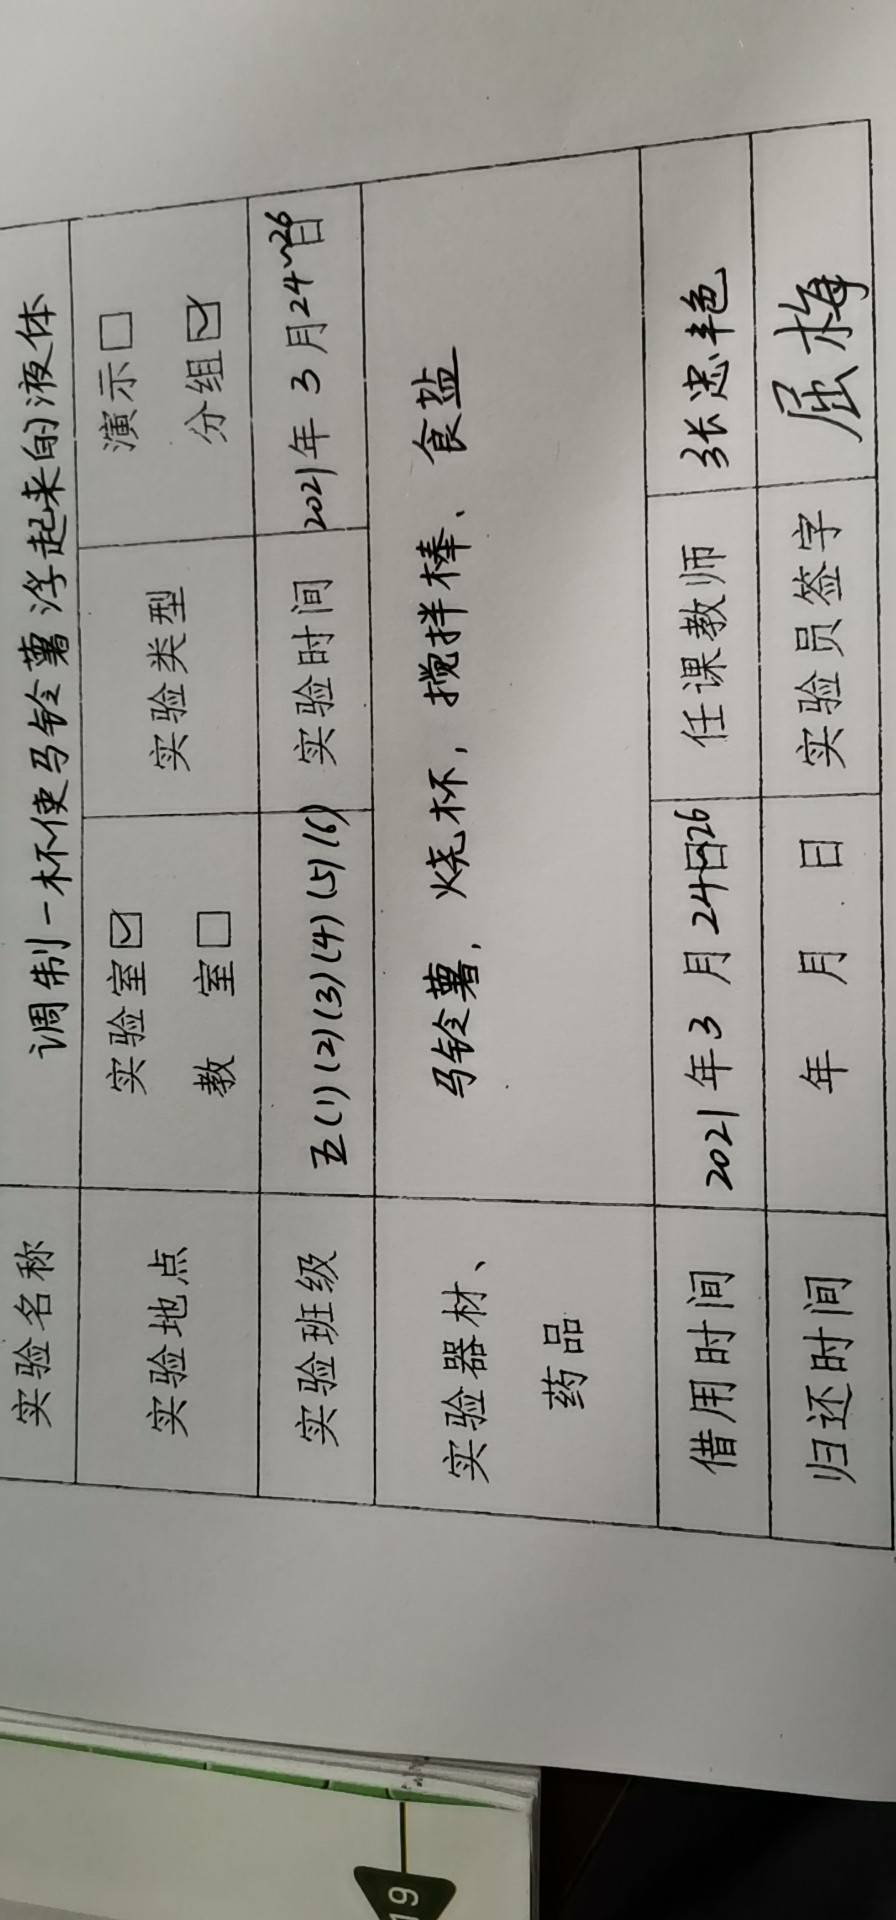 实验名称 调制一杯使马铃薯浮起来的液体
实验地点 实验室☑ 实验类型 演示□
教 室□ 分组☑
实验班级 五(1)(2)(3)(4)(5)(6) 实验时间 2021年3月24~26日
实验器材、
药品
马铃薯,烧杯,搅拌棒、食盐
借用时间 2021年3月24日~26 任课教师 张忠艳
归还时间 年 月 日 实验员签字 屈梅
19